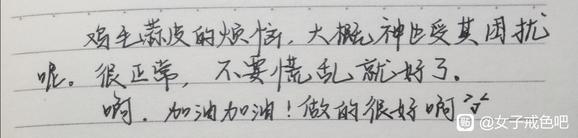 鸡毛蒜皮的烦恼，大概神也受其困扰
呢。很正常，不要慌乱就好了。
啊．加油加油！做的很好啊
贴 @女子戒色吧